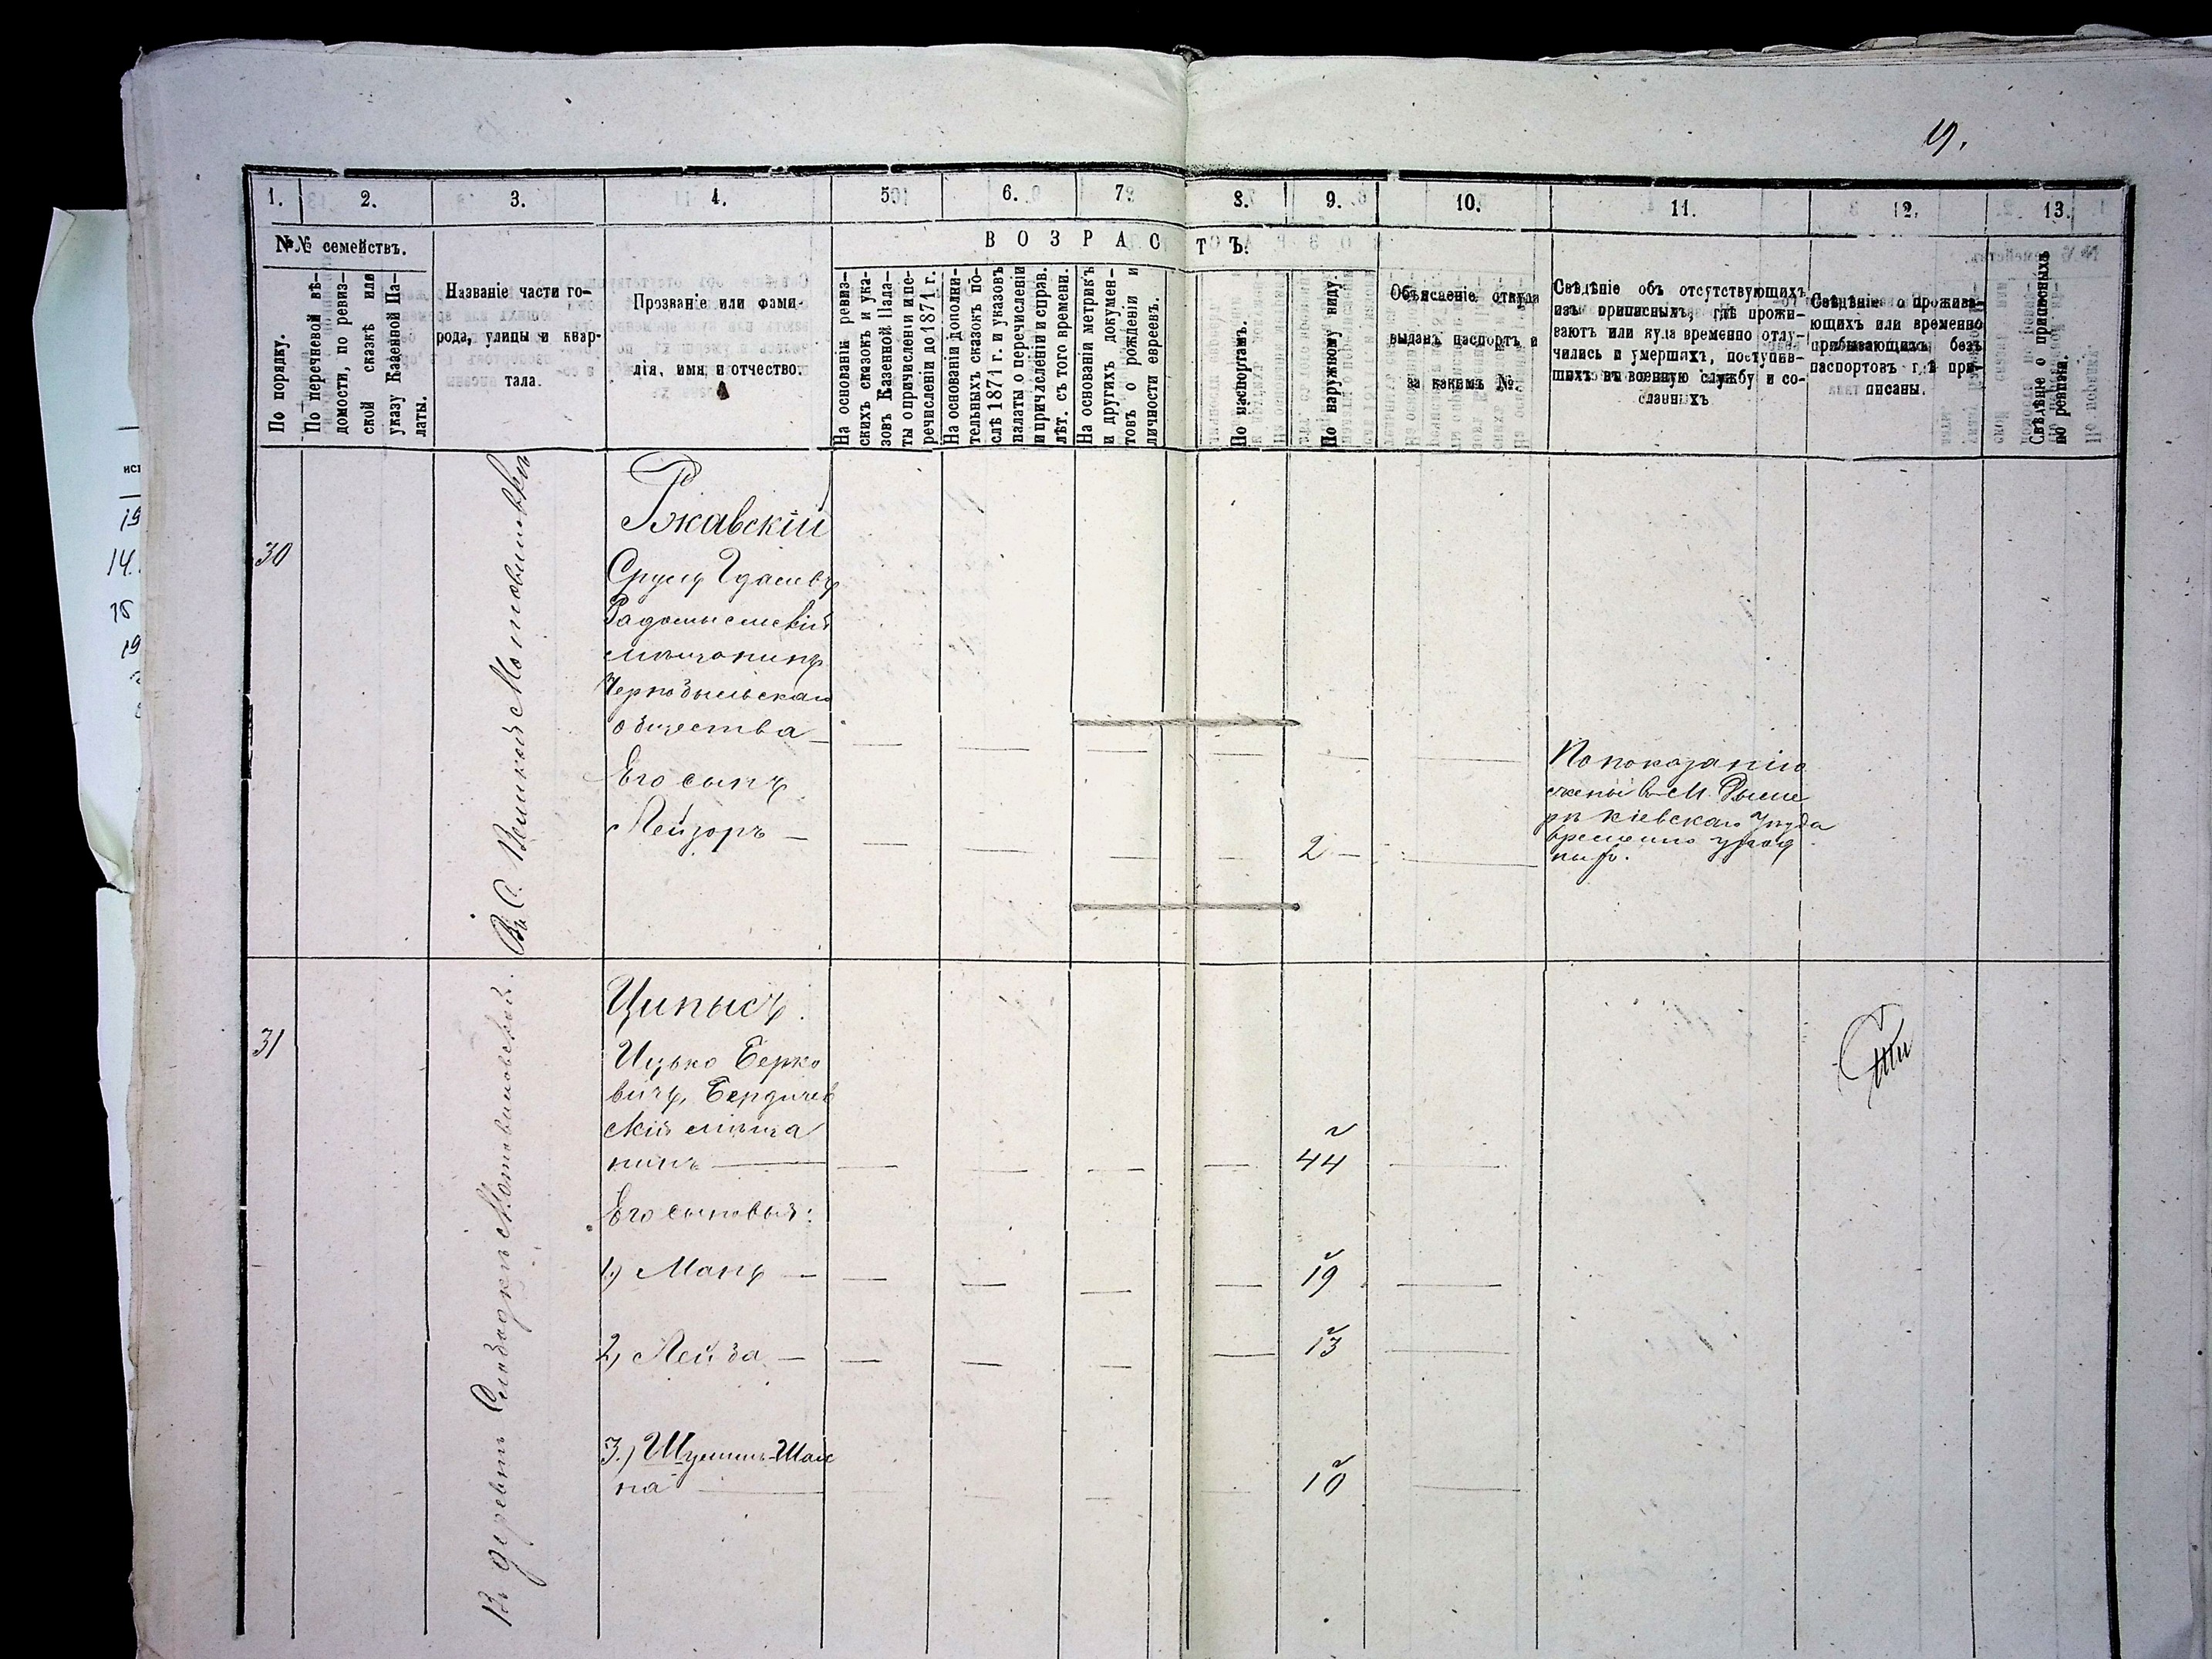 9.
1. 2. 3. 4. 5. 6. 7. 8. 9. 10. 11. 12. 13.
№№ семействъ.
ВОЗРАСТЪ.
По порядку.
По перечневой вѣ-
домости, по ревиз-
ской сказкѣ или
указу Казенной Па-
латы.
Названіе части го-
рода, улицы и квар-
тала.
Прозваніе или фами-
лія, имя и отчество.
На основаніи ревиз-
скихъ сказокъ и ука-
зовъ Казенной Пала-
ты о причисленіи и пе-
речисленіи до 1871 г.
На основаніи дополни-
тельныхъ сказокъ по-
слѣ 1871 г. и указовъ
палаты о перечисленіи
и причисленіи и справ.
лѣт. съ того времени.
На основаніи метрикъ
и другихъ докумен-
товъ о рожденіи и
личности евреевъ.
По паспортамъ.
По наружному виду.
Объясненіе откуда
выданъ паспортъ и
за какимъ №.
Свѣдѣніе объ отсутствующихъ
изъ приписныхъ, гдѣ прожи-
ваютъ или куда временно отлу-
чились и умершихъ, поступив-
шихъ въ военную службу и со-
сланныхъ
Свѣдѣніе о прожива-
ющихъ или временно
прибывающихъ безъ
паспортовъ гдѣ при-
писаны.
Свѣдѣніе о приписныхъ
по ревизіи.
30
Ржавскій
Сруль
Радомысльскій
мѣщанинъ
Чернобыльскаго
общества —
Его сынъ
Лейзоръ —
2 —
По показанію
жены в М. Дыме
рѣ Кіевскаго Уѣзда
временно
31
Ципысъ
Ицько Берко
вичъ, Бердичев
скій мѣща
нинъ —
44
Его сыновья:
1) Манъ — 19
2) Лейба — 13
3.) Шулимъ-Шая
на — 10
Въ деревнѣ Слободкѣ